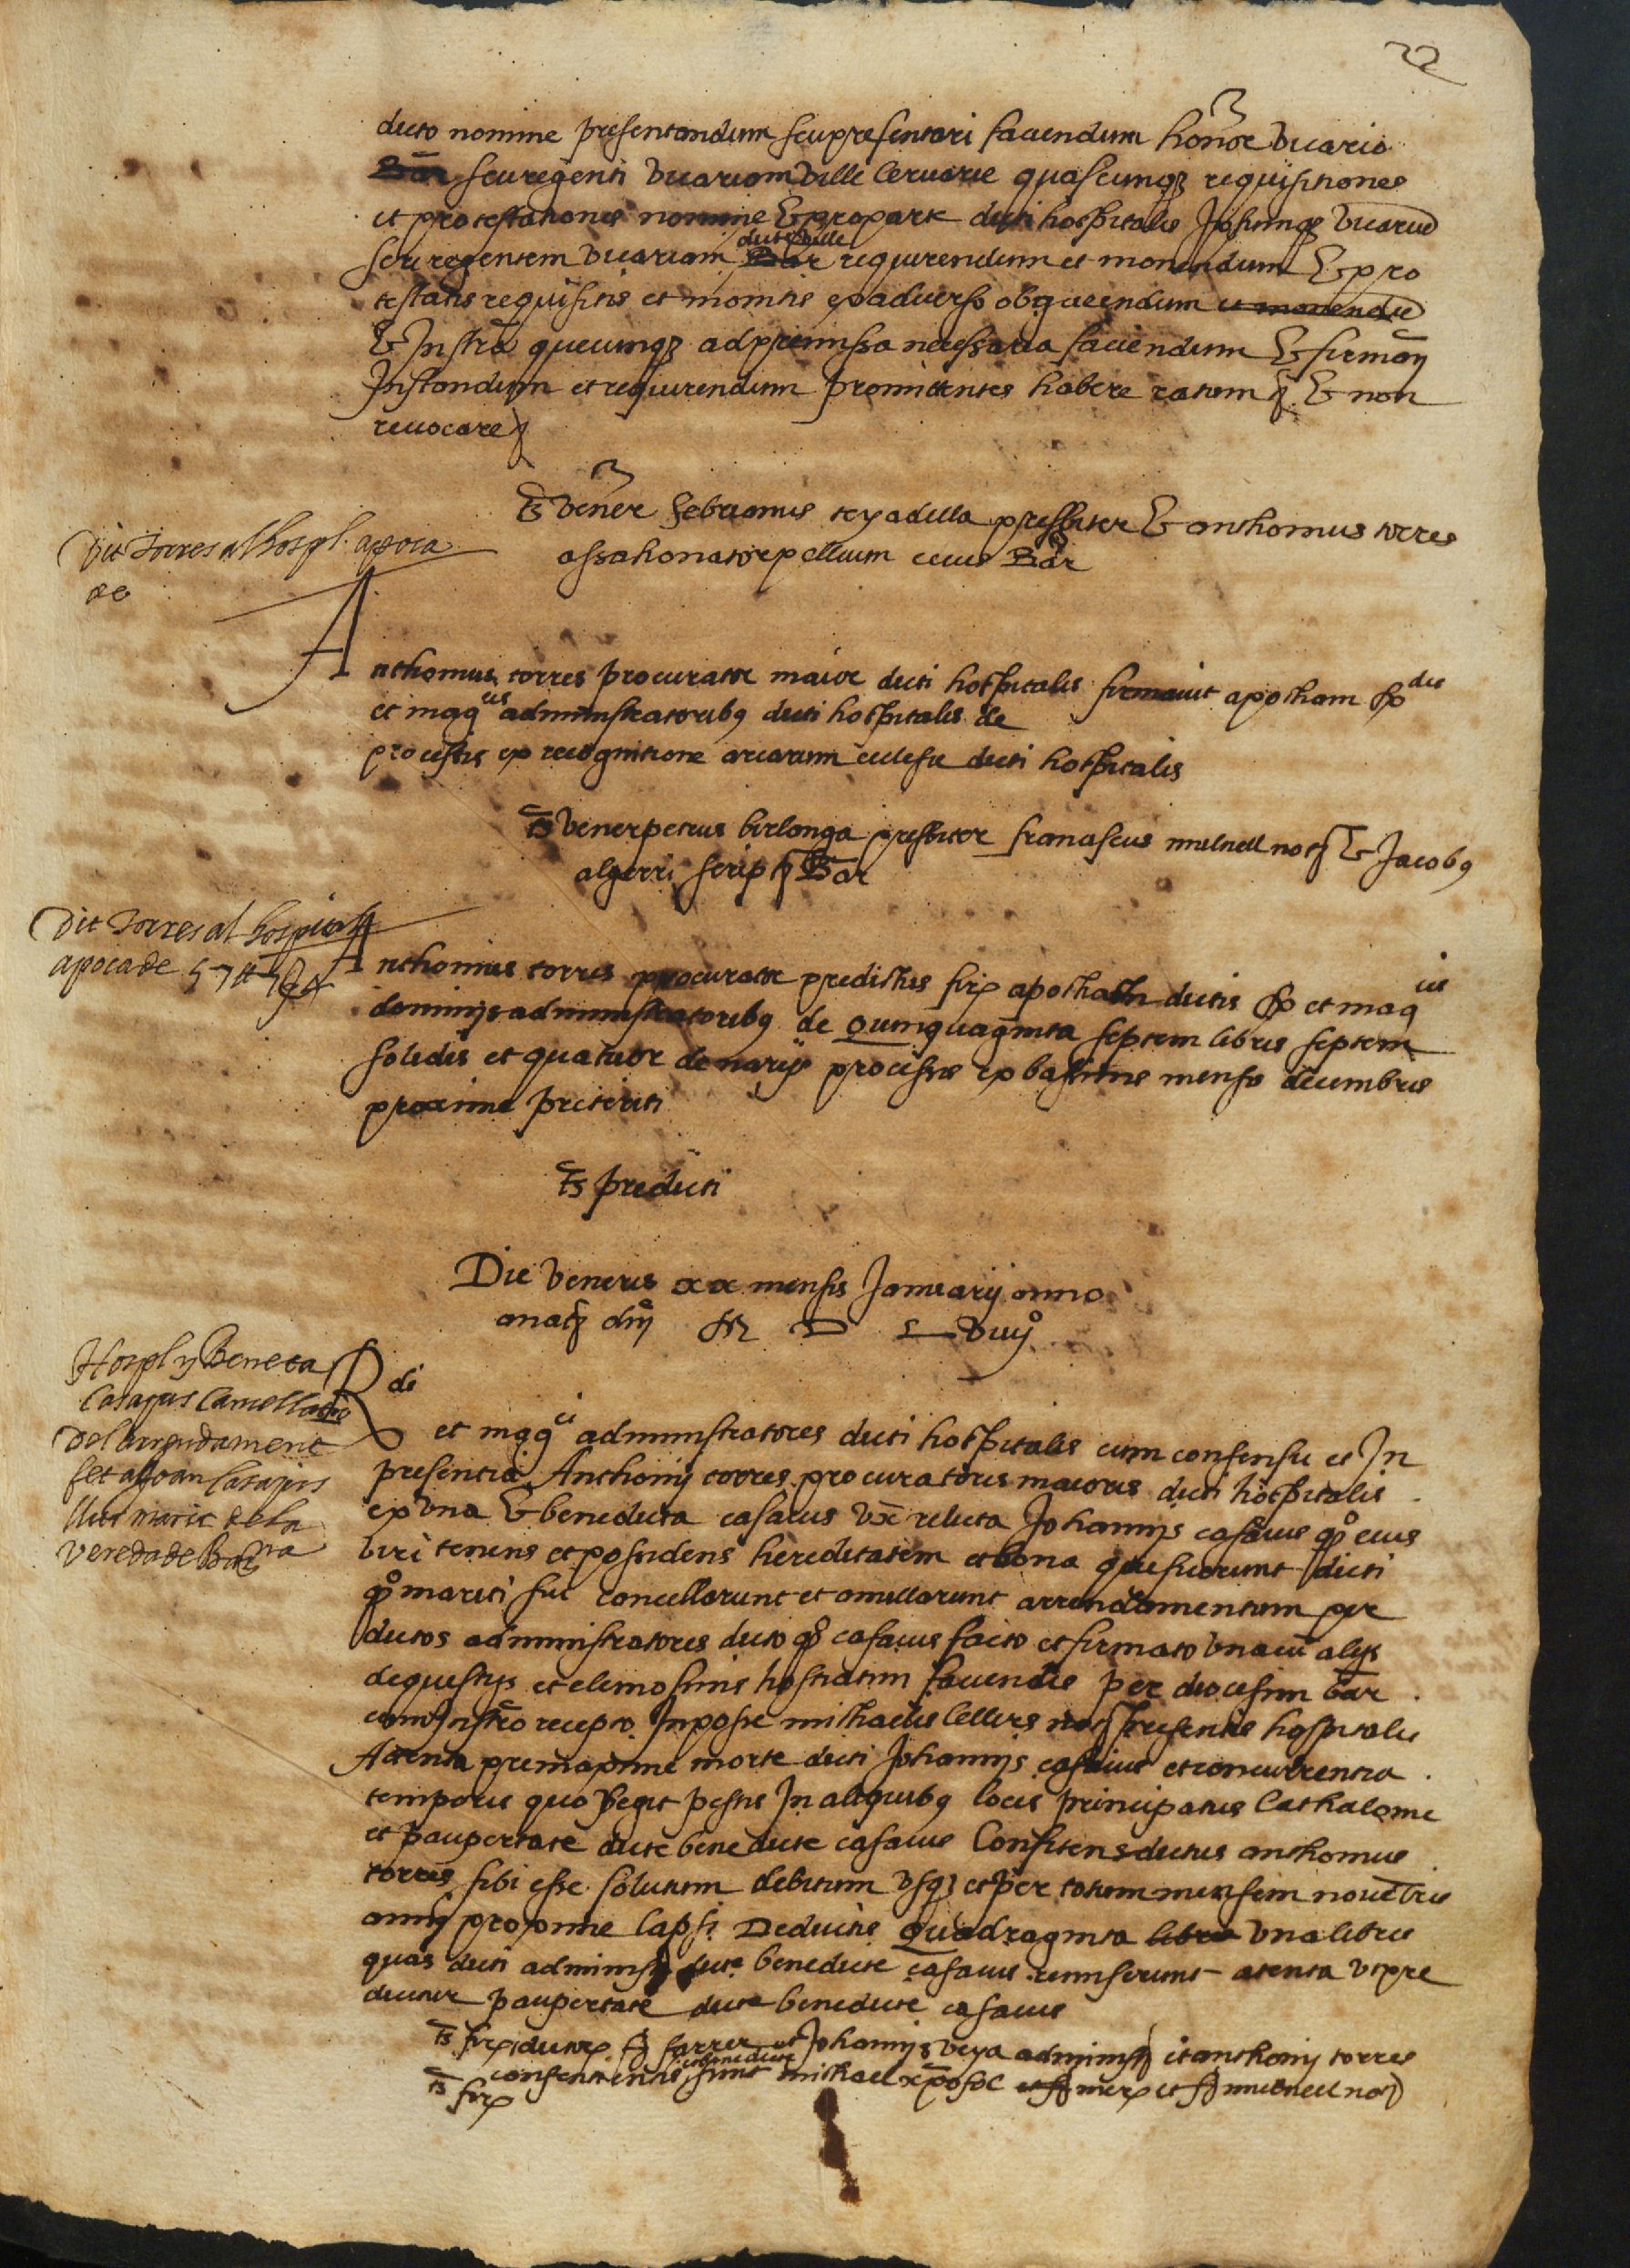 22
dicto nomine presentandum seu presentari faciendum honor vicario
Bar seu regenti vicariam ville Cervarie quascunq requisitiones
et protestationes nomine & pro parte dicti hospitalis Ipsumq vicariu
seu regentem vicariam Bar dicte ville requirendum et monendum & pro
testatis requisitis et monitis ex adverso obiiciendum et monendu
& Instra quecunq ad premissa necessaria faciendum & firman
Instandum et requirendum promittentes habere ratum & non
revocare
ts vener Sebrianus teyadella presbiter & anthonius torres
assahonator pellium cives Bar
Dit Torres al hospl. apoca
de
Anthonius torres procurator maior dicti hospitalis firmavit apocham Rdis
et magcis administratoribq dicti hospitalis de
processis ex recognitione arcarum ecclesie dicti hospitalis
ts vener petrus berlonga presbiter franciscus mulnell not & Jacobq
algerri script Bar
Dit Torres al hospital
apoca de 57 ll 7 s 4
Anthonius torres procurator predictus fir apocham dictis Rdis et magcis
dominijs administratoribq de Quinquaginta septem libris septem
solidis et quatuor denarijs processis ex bassinis mense decembris
proxime preteriti
ts predicti
Die veneris xx mensis Januarij anno
a nat dnj M D L viijo
Hospl y Beneta
Casajus Cancellacio
del arrendament
fet a Joan Casajus
llur marit de la
vereda de Barna
Rdi
et magci administratores dicti hospitalis cum consensu et In
presentia Anthonij torres procuratoris maioris dicti hospitalis
ex una & benedicta casaius vx relicta Johannis casaius qo eius
viri tenens et possidens hereditatem et bona que fuerunt dicti
qo mariti sui concellarunt et anullarunt arrendamentum per
dictos administratores dicto qo casaius facto et firmato una cu alijs
de questijs et elemosinis hostiatim faciendis per diocesim Bar
cum Instro recepto In posse michaelis Cellers not presentis hospitalis
Attenta premaxime morte dicti Johannis casaius et concurrentia
temporis quo viget pestis In aliquibq locis principatus Cathalonie
et paupertate dicte benedicte casaius Confitens dictus anthonius
torres sibi esse solutum debitum usq et per totum mensem novebris
anni proxime lapsi Deductis Quadraginta libris una libris
quas dicti administ dicte benedicte casaius remiserunt atenta ut pre
dicitur paupertate dicte benedicte casaius
ts firx dictor ff farrer et Johannis veya administ et anthonij torres
consentientis et benedicte sunt michael xpofol et ff mer et ff mulnell not
ts fir